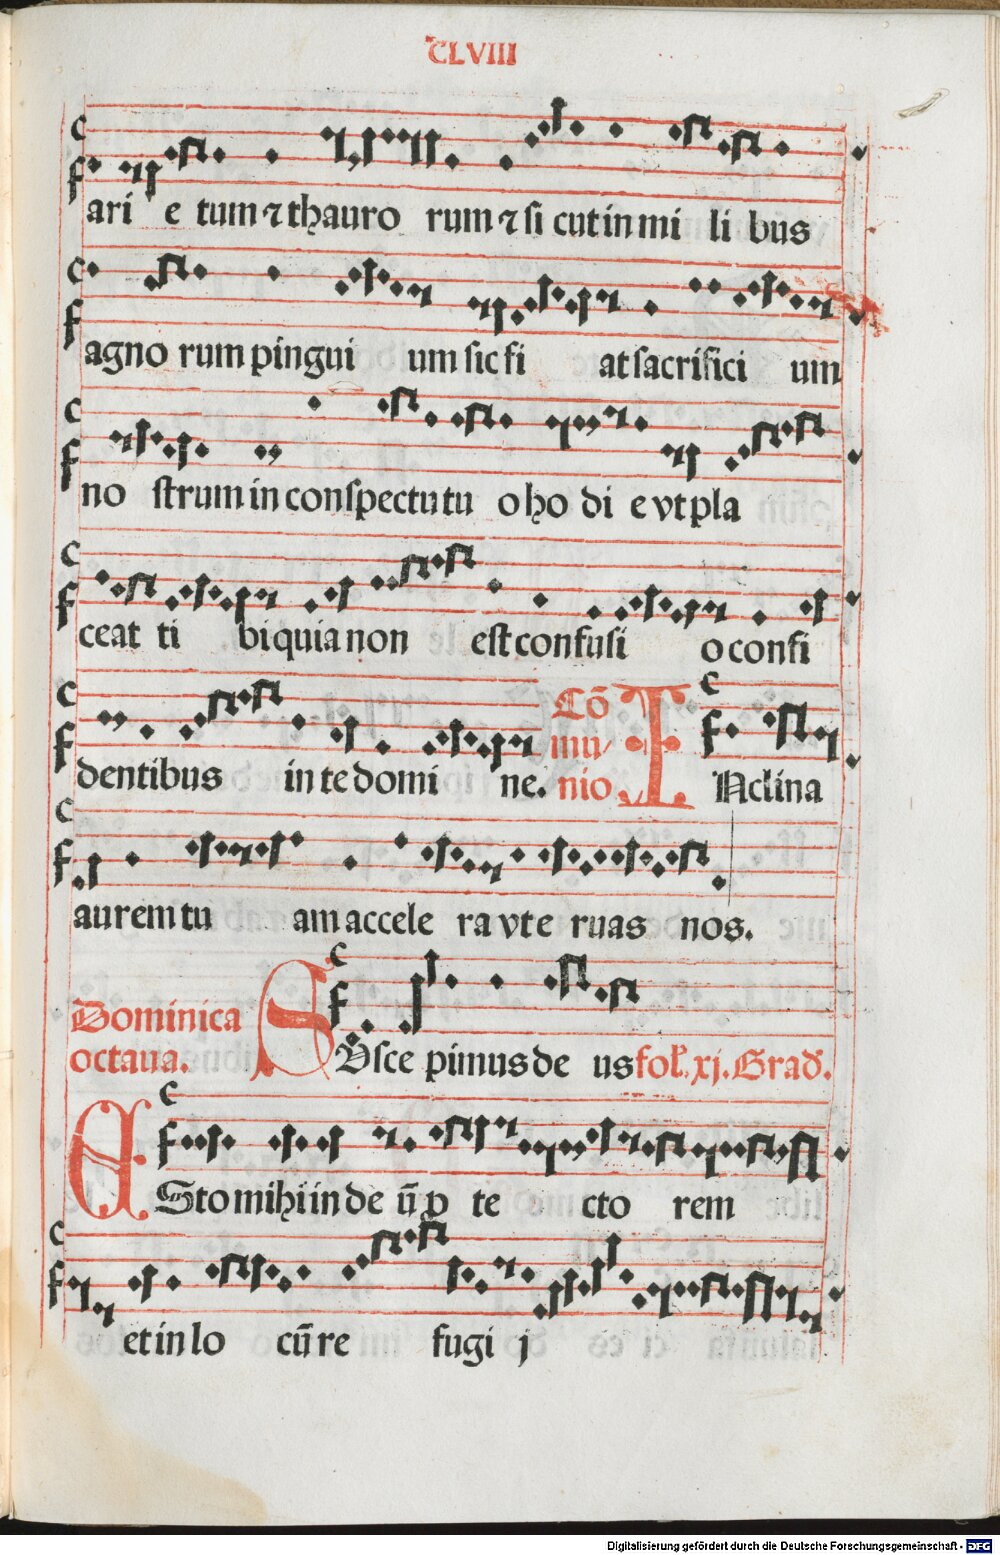 CLVIII
ari e tum ⁊ thauro rum ⁊ si cut in mi li bus
agno rum pingui um sic fi at sacrifici um
no strum in conspectu tu o ho di e vt pla
ceat ti bi quia non est confusi o confi
dentibus in te domi ne. Cō
mu/
nio I Nclina
aurem tu am accele ra vt e ruas nos.
Dominica
octaua. S Vsce pimus de us fol. xj. Grad.
E Sto mihi in de ū ꝓ te cto rem
et in lo cū re fugi j
Digitalisierung gefördert durch die Deutsche Forschungsgemeinschaft - DFG